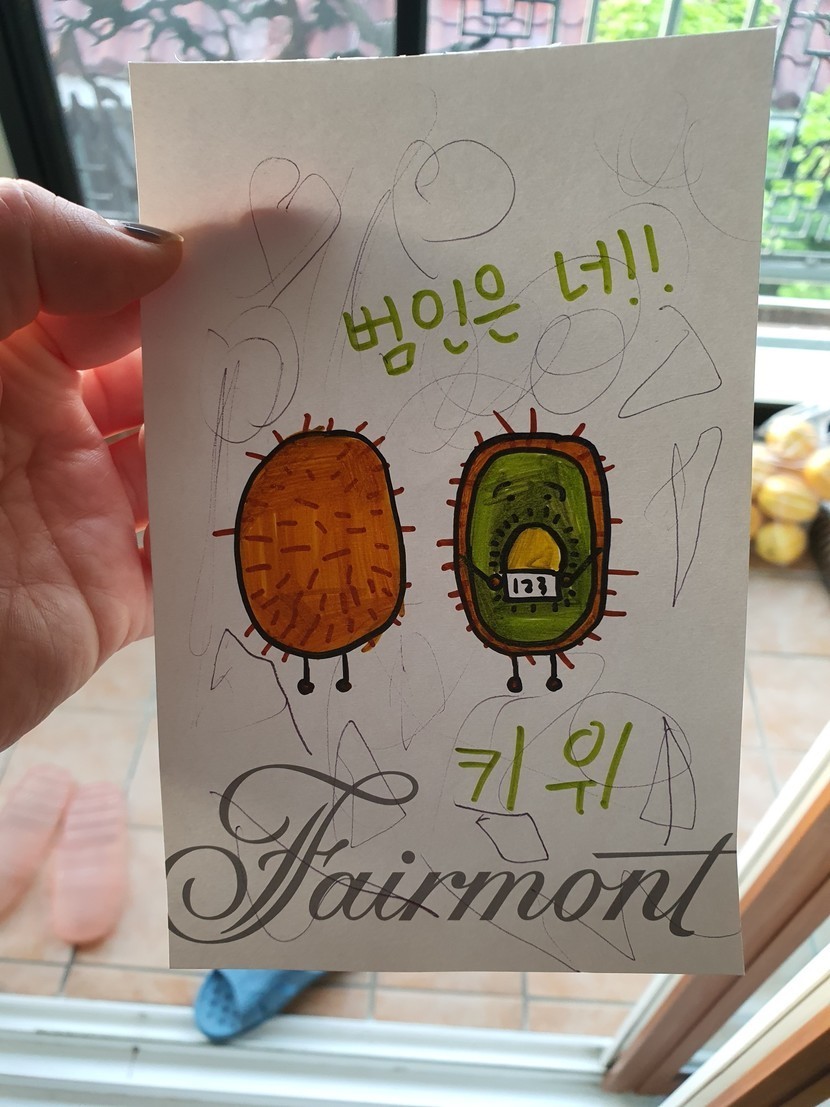 범인은 너!!
123
키위
Fairmont